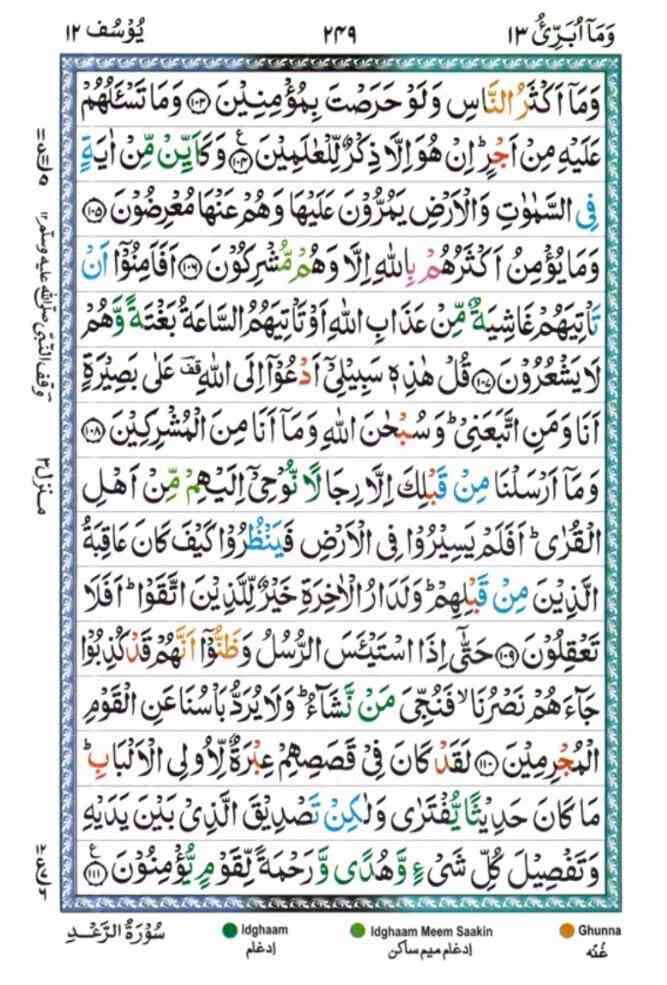 وَمَآ اُبَرِّئُ ١٣
٢٤٩
يُوْسُف ١٢
وَمَآ اَكْثَرُ النَّاسِ وَلَوْ حَرَصْتَ بِمُؤْمِنِيْنَ ﴿١٠٣﴾ وَمَا تَسْـَٔلُهُمْ
عَلَيْهِ مِنْ اَجْرٍ ؕ اِنْ هُوَ اِلَّا ذِكْرٌ لِّلْعٰلَمِيْنَ ﴿١٠٤﴾ ع وَكَاَيِّنْ مِّنْ اٰيَةٍ
فِى السَّمٰوٰتِ وَالْاَرْضِ يَمُرُّوْنَ عَلَيْهَا وَهُمْ عَنْهَا مُعْرِضُوْنَ ﴿١٠٥﴾
وَمَا يُؤْمِنُ اَكْثَرُهُمْ بِاللّٰهِ اِلَّا وَهُمْ مُّشْرِكُوْنَ ﴿١٠٦﴾ اَفَاَمِنُوْۤا اَنْ
تَاْتِيَهُمْ غَاشِيَةٌ مِّنْ عَذَابِ اللّٰهِ اَوْ تَاْتِيَهُمُ السَّاعَةُ بَغْتَةً وَّهُمْ
لَا يَشْعُرُوْنَ ﴿١٠٧﴾ قُلْ هٰذِهٖ سَبِيْلِيْۤ اَدْعُوْۤا اِلَى اللّٰهِ قف عَلٰى بَصِيْرَةٍ
اَنَا وَمَنِ اتَّبَعَنِيْ ؕ وَسُبْحٰنَ اللّٰهِ وَمَآ اَنَا مِنَ الْمُشْرِكِيْنَ ﴿١٠٨﴾
وَمَآ اَرْسَلْنَا مِنْ قَبْلِكَ اِلَّا رِجَالًا نُّوْحِيْۤ اِلَيْهِمْ مِّنْ اَهْلِ
الْقُرٰى ؕ اَفَلَمْ يَسِيْرُوْا فِى الْاَرْضِ فَيَنْظُرُوْا كَيْفَ كَانَ عَاقِبَةُ
الَّذِيْنَ مِنْ قَبْلِهِمْ ؕ وَلَدَارُ الْاٰخِرَةِ خَيْرٌ لِّلَّذِيْنَ اتَّقَوْا ؕ اَفَلَا
تَعْقِلُوْنَ ﴿١٠٩﴾ حَتّٰٓى اِذَا اسْتَيْـَٔسَ الرُّسُلُ وَظَنُّوْۤا اَنَّهُمْ قَدْ كُذِبُوْا
جَآءَهُمْ نَصْرُنَا ۙ فَنُجِّىَ مَنْ نَّشَآءُ ؕ وَلَا يُرَدُّ بَاْسُنَا عَنِ الْقَوْمِ
الْمُجْرِمِيْنَ ﴿١١٠﴾ لَقَدْ كَانَ فِيْ قَصَصِهِمْ عِبْرَةٌ لِّاُولِى الْاَلْبَابِ ؕ
مَا كَانَ حَدِيْثًا يُّفْتَرٰى وَلٰكِنْ تَصْدِيْقَ الَّذِيْ بَيْنَ يَدَيْهِ
وَتَفْصِيْلَ كُلِّ شَيْءٍ وَّهُدًى وَّرَحْمَةً لِّقَوْمٍ يُّؤْمِنُوْنَ ﴿١١١﴾ ع
وقف النبى صلى الله عليه وسلم ١٢
منزل ٣
سُوْرَةُ الرَّعْـدِ
Idghaam
ادغام
Idghaam Meem Saakin
ادغام میم ساکن
Ghunna
غُنّه